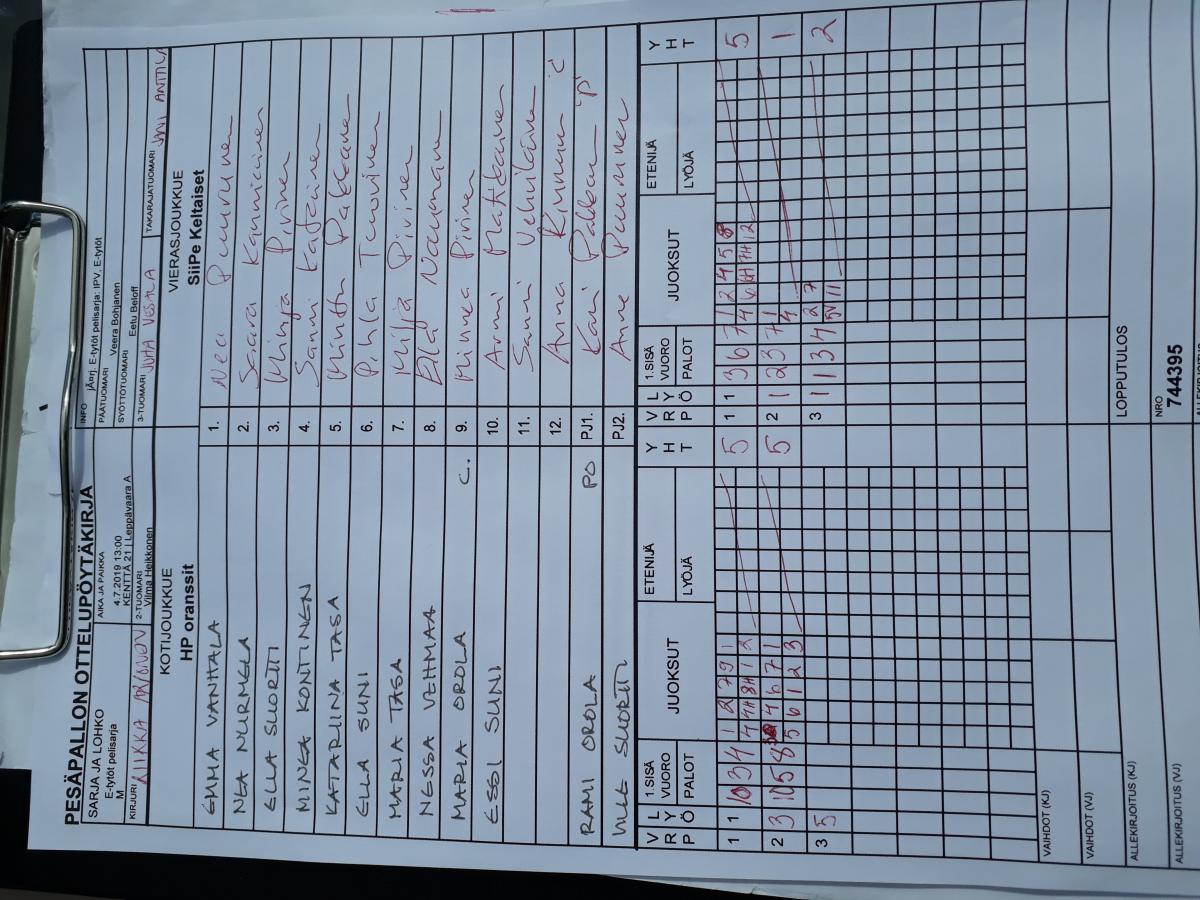 PESÄPALLON OTTELUPÖYTÄKIRJA
SARJA JA LOHKO
E-tytöt pelisarja
M
AIKA JA PAIKKA
4.7.2019 13:00
KENTTÄ 21 | Leppävaara A
INFO jÄerj. E-tytöt pelisarja: IPV, E-tytöt
PÄÄTUOMARI Veera Bohjanen
SYÖTTÖTUOMARI Eetu Beloff
KIRJURI
2-TUOMARI
Vilma Heikkonen
3-TUOMARI JUHA VESALA
TAKARAJATUOMARI JANI ANTTILA
KOTIJOUKKUE
HP oranssit
VIERASJOUKKUE
SiiPe Keltaiset
EMMA VANHALA 1. Nea Puurunen
NEA NURMELA 2. Saara
ELLA SUORTTI 3. Minja Pirinen
MINEA KONTINEN 4. Sanni
KATARIINA TASA 5. Minttu Pakkanen
ELLA SUNI 6. Pihla Tuovinen
MARIA TASA 7. Milja Pirinen
NESSA VEHMAA 8. Ella Naumanen
MARIA OROLA C. 9. Minnea Pirinen
ESSI SUNI 10. Anni
11. Sanni
12. Anna Rinnunen 'C'
RAMI OROLA PO PJ1. Kari Pakkanen 'P'
SUORTTI PJ2. Anne Puurunen
V R P
L Y Ö
1.SISÄ VUORO
PALOT
JUOKSUT
ETENIJÄ
LYÖJÄ
Y H T
V R P
L Y Ö
1.SISÄ VUORO
PALOT
JUOKSUT
ETENIJÄ
LYÖJÄ
Y H T
1 1 10 3 4 1 2 7 9 1 5
1 1 3 6 7 1 2 4 5 8 5
2 3 10 5 8 4 6 7 1 5
5 6 1 2 3
2 1 2 3 7 1 1
4
3 5
3 1 1 3 4 2 7 2
VAIHDOT (KJ)
VAIHDOT (VJ)
LOPPUTULOS
ALLEKIRJOITUS (KJ)
ALLEKIRJOITUS (VJ)
NRO
744395